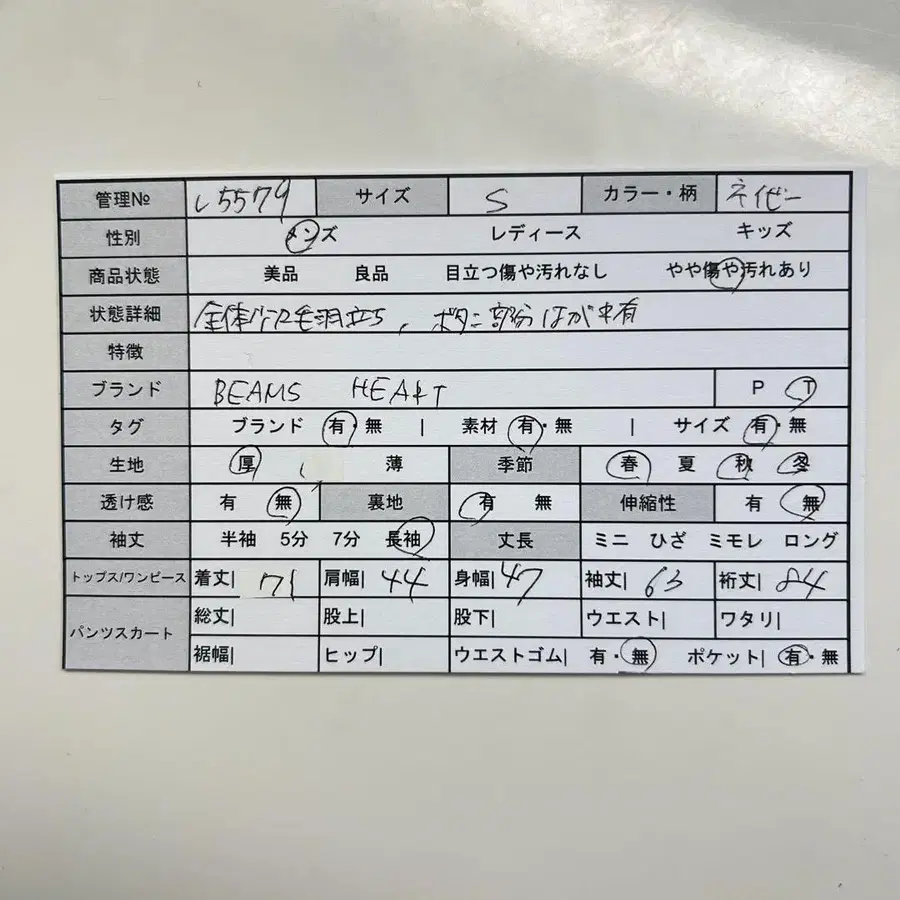 管理№ し5579 サイズ S カラー・柄 ネイビー
性別 メンズ レディース キッズ
商品状態 美品 良品 目立つ傷や汚れなし やや傷や汚れあり
状態詳細 全体的に毛羽立ち、ボタン部分はがれ有
特徴
ブランド BEAMS HEART P T
タグ ブランド 有・無 | 素材 有・無 | サイズ 有・無
生地 厚 薄 季節 春 夏 秋 冬
透け感 有 無 裏地 有 無 伸縮性 有 無
袖丈 半袖 5分 7分 長袖 丈長 ミニ ひざ ミモレ ロング
トップス/ワンピース 着丈| 71 肩幅| 44 身幅| 47 袖丈| 63 裄丈| 84
パンツスカート 総丈| 股上| 股下| ウエスト| ワタリ|
裾幅| ヒップ| ウエストゴム| 有・無 ポケット| 有・無